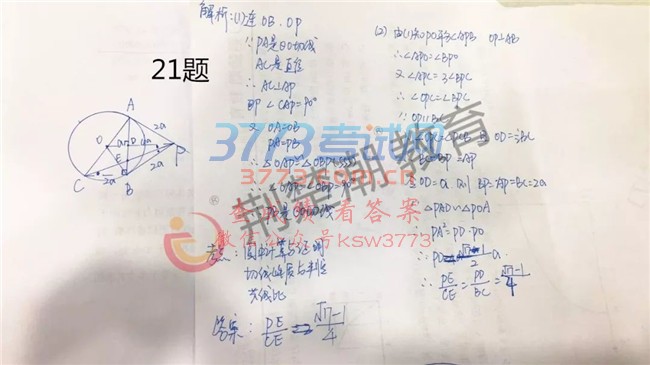 21题
解析:(1)连OB、OP
∵PA是⊙O切线
AC是直径
∴AC⊥AP
即∠CAP=90°
又 OA=OB
PA=PB
∴△OAP≌△OBP(SSS)
∴∠OAP=∠OBP=90°
PB是⊙O切线
考点:圆中计算与证明
切线性质与判定
答案:PE/CE=(√17-1)/4
(2)由(1)知PO平分∠APB OP⊥AB
∴∠APO=∠BPO
又∠APC=3∠BPC
∴∠OPC=∠BPC
OD=½BC
BC=BP=AP
OD=a 则 BP=AP=BC=2a
△PAD∽△POA
∴PA²=PD·PO
∴PD=(√17-1)/2 a
∴PE/CE=PD/BC=(√17-1)/4
A
2a
O
a
D
P
E
2a
C
2a
B
3773考试网
3773.com.cn
荆楚潮教育
查成绩看答案
微信公众号ksw3773